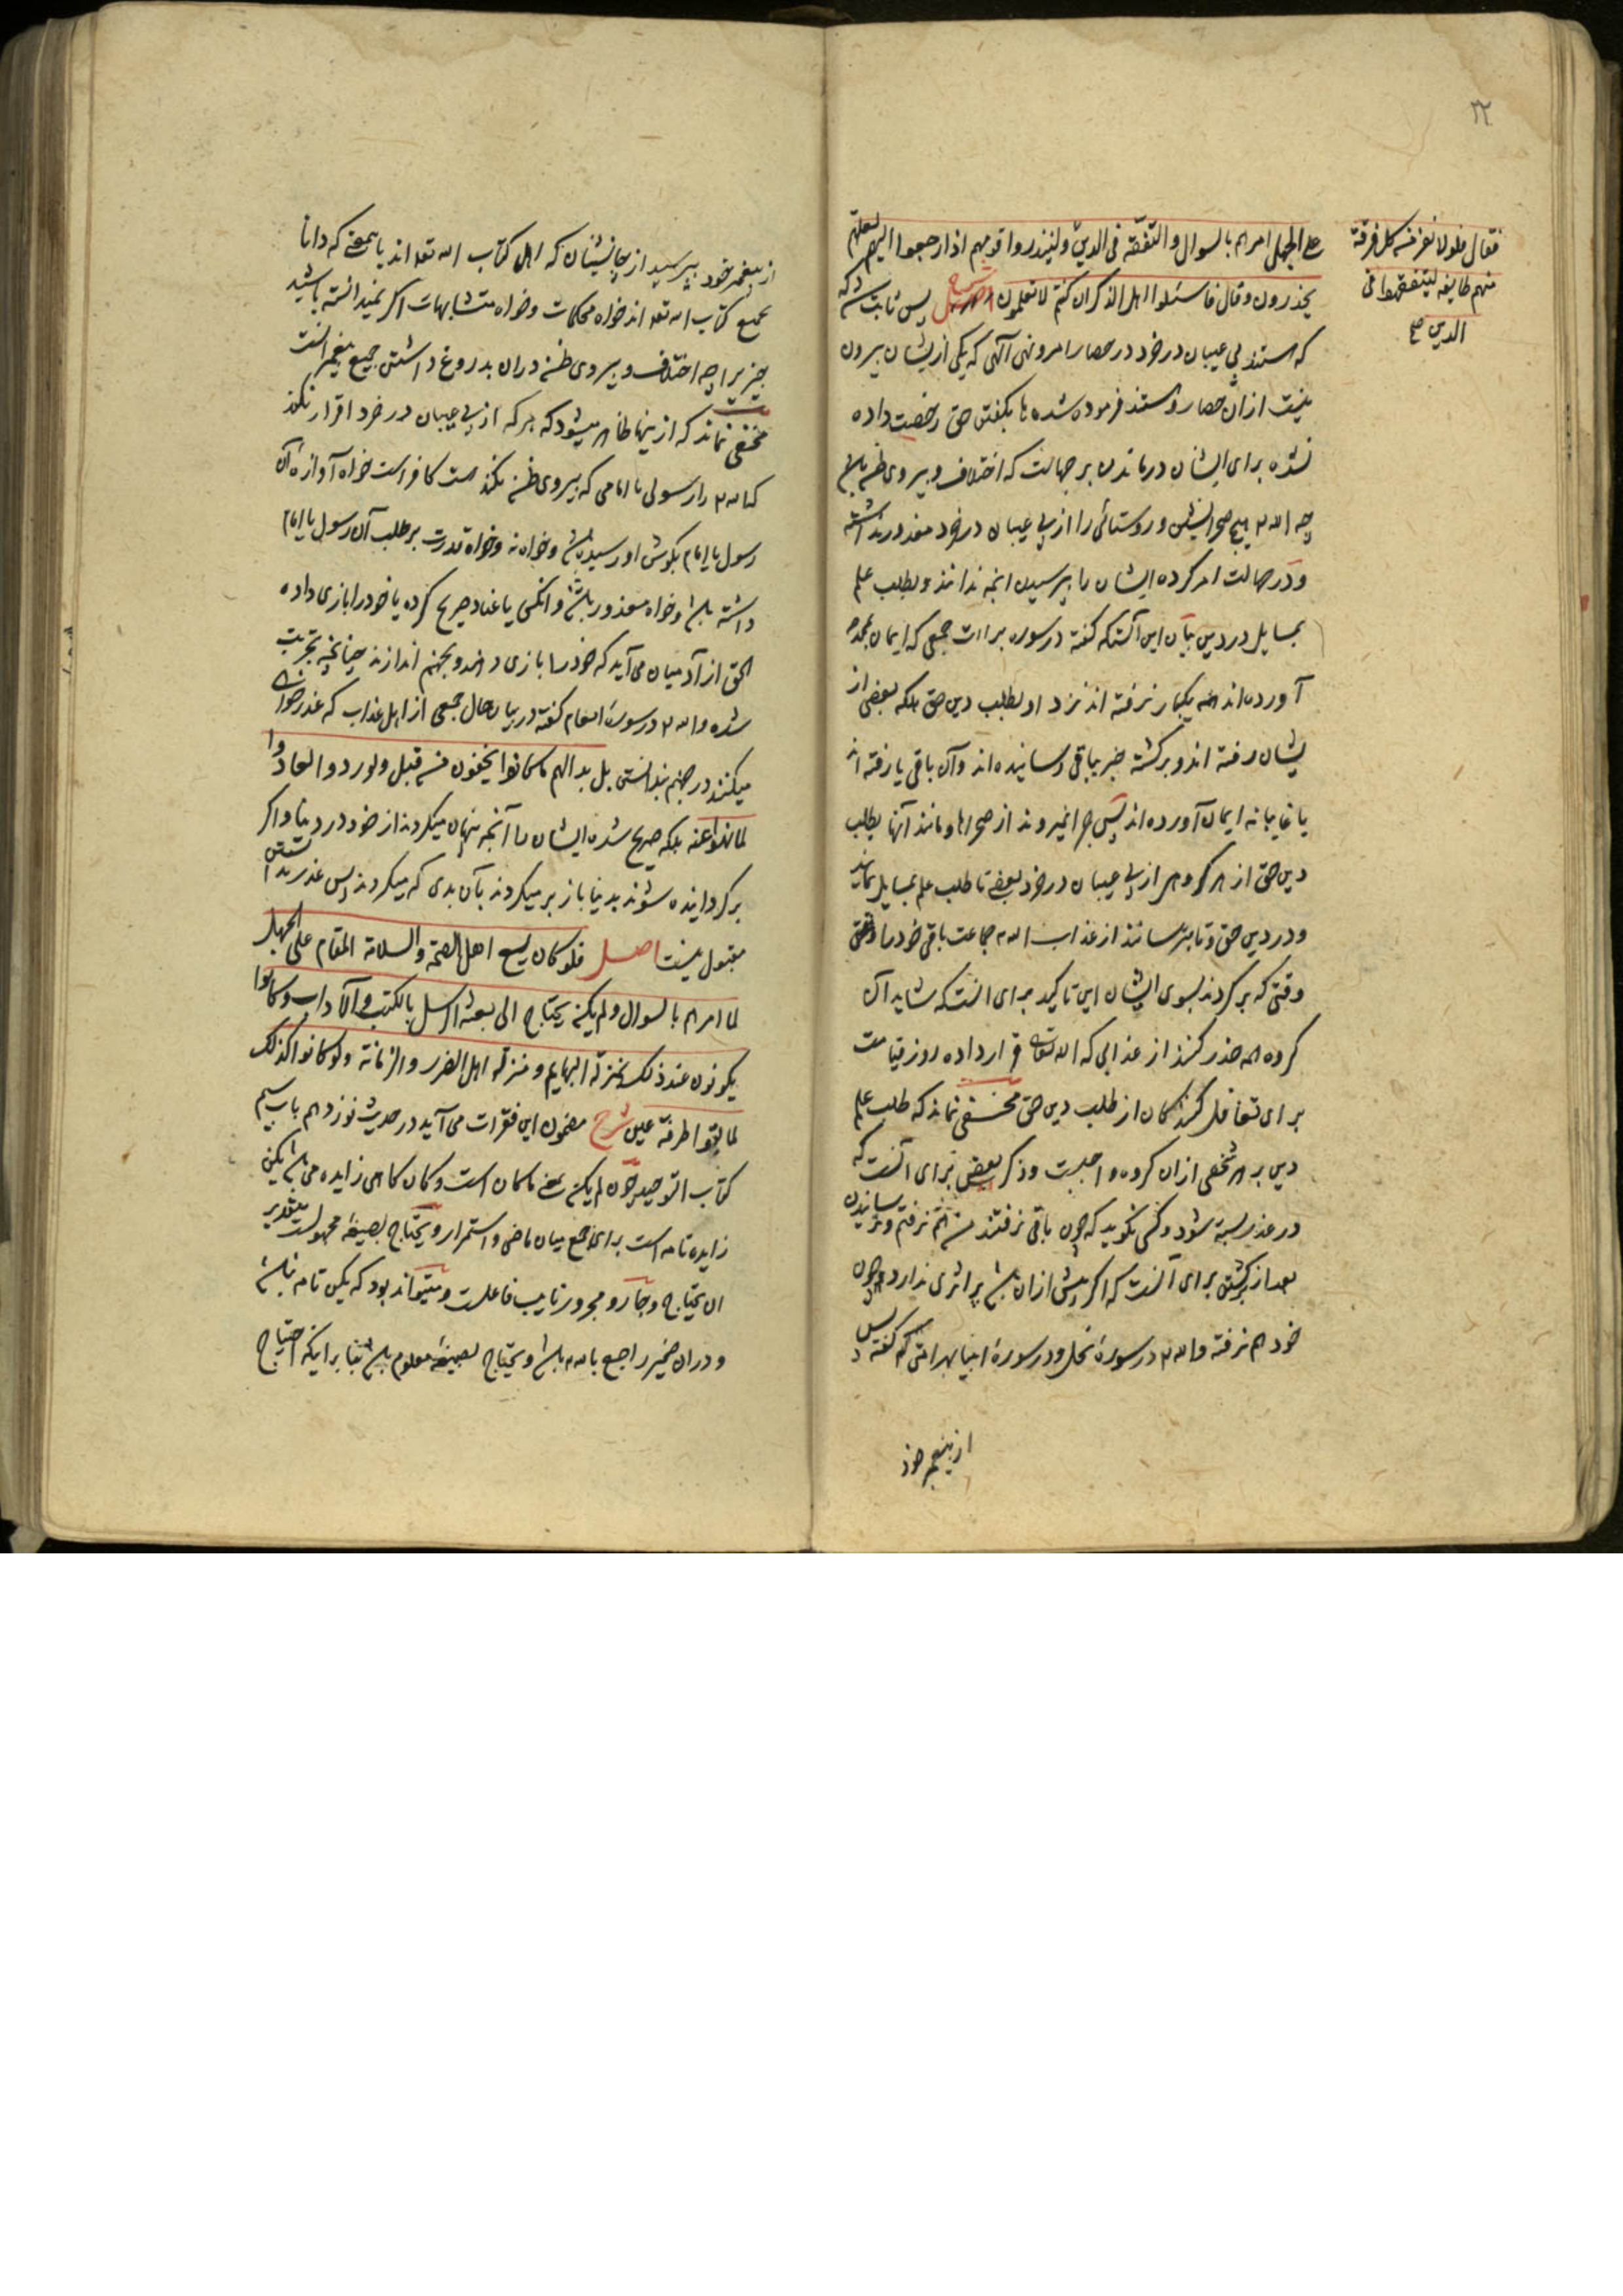 ۲۲
فقال فلولا نفر من کل فرقة
منهم طایفه لیتفقهوا فی
الدین صح
علی الجهل امرهم بالسوال و التفقه فی الدین و لینذروا قومهم اذا رجعوا الیهم لعلهم
یحذرون و قال فاسئلوا اهل الذکر ان کنتم لا تعلمون شرح پس ثابت شد که
که هستند بی عیبان در خرد در حصار امر و نهی آلهی که یکی از یشان بیرون
نیست ازان حصار و هستند فرموده شده ها بگفتن حق رخصت داده
نشده برای ایشان در ماندن بر جهالت که اختلاف و پیروی ظن باشد
چه الله تع هیچ صحرانشین و روستائی را از بی عیبان در خرد معذور نداشته
و در جهالت امر کرده ایشان را بپرسیدن انچه ندانند و بطلب علم
بمسایل در دین بیان این آنستکه گفته در سوره براات جمعی که ایمان بمحمد
آورده اند همه یکبار نرفته اند نزد او بطلب دین حق بلکه بعضی از
یشان رفته اند و برگشته خبر بباقی رسانیده اند و آن باقی یا رفته اند
یا غایبانه ایمان آورده اند پس چرا نمیروند از صحراها و مانند آنها بطلب
دین حق از هر گروهی از بی عیبان در خرد بعضی تا طلب علم بمسایل نمایند
و در دین حق و تا بترسانند از عذاب الله جماعت باقی خود را
وقتی که برگردند بسوی ایشان این تاکید برای انست که شاید آن
گروه همه حذر کنند از عذابی که الله تعالی قرار داده روز قیامت
برای تغافل کنندگان از طلب دین حق مخفی نماند که طلب علم
دین بر هر شخصی ازان گروه واجبست و ذکر بعضی برای آنست که
در عذر بسته شود و کسی نگوید که چون باقی نرفتند من هم نرفتم و ترسانیدن
بعد از برگشتن برای آنست که اگر پیش ازان باشد پر اثری ندارد چون
خود هم نرفته و الله تع در سورهٔ نحل و در سورهٔ انبیا بهر امتی که گفته پس
از پیغمبر خود
از پیغمبر خود بپرسید از جانشینان که اهل کتاب الله تعه اند یا بمعنی که دانا
بجمیع کتاب الله تعه اند خواه محکمات و خواه متشابهات اگر نمیدانسته باشید
چیزیرا چه اختلاف و پیروی ظن دران بدروغ داشتن جمیع پیغمبرانست
مخفی نماند که ازینها ظاهر میشود که هر که از بی عیبان در خرد اقرار نکند
که الله تع را رسولی یا امامی که پیروی ظن نکند هست کافر است خواه آوازه آن
رسول یا امام بگوش او رسیده باشد و خواه نه و خواه قدرت بر طلب آن رسول یا امام
داشته باشد و خواه معذور باشد و انکس یا عناد صریح کرده یا خود را بازی داده
الحق از آدمیان می آید که خود را بازی دهند و بجهنم اندازند چنانچه بتجربت
شده و الله تع در سوره انعام گفته در بیان حال جمعی از اهل عذاب که عذرخواهی
میکنند در جهنم بندانستن بل بدا لهم ما کانوا یخفون من قبل و لو ردوا لعادوا
لما نهوا عنه بلکه صریح شده ایشان را آنچه پنهان میکردند از خود در دنیا و اگر
برگردانیده شوند بدنیا باز بر میگردند بآن بدی که میکردند پس عذر ندانستن
مقبول نیست اصل فلو کان یسع اهل الصحة و السلامة المقام علی الجهل
لما امرهم بالسوال و لم یکن یحتاج الی بعثة الرسل بالکتب و الآداب و کانوا
یکونون عند ذلک بمنزلة البهایم و منزلة اهل الضرر و الزمانة و لو کانوا کذلک
لما بقوا طرفة عین شرح مضمون این فقرات می آید در حدیث نوزدهم باب سیم
کتاب التوحید چون لم یکن بمعنی ما کان است و کان گاهی زایده می باشد یکن
زایده تامه است برای جمع میان ماضی و استمرار و یحتاج بصیغه مجهولست بتقدیر
ان یحتاج و جار و مجرور نایب فاعلست و میتواند بود که یکن تامه نباشد
و دران ضمیر راجع بالله باشد و یحتاج بصیغه معلوم باشد بنا برانکه احتیاج